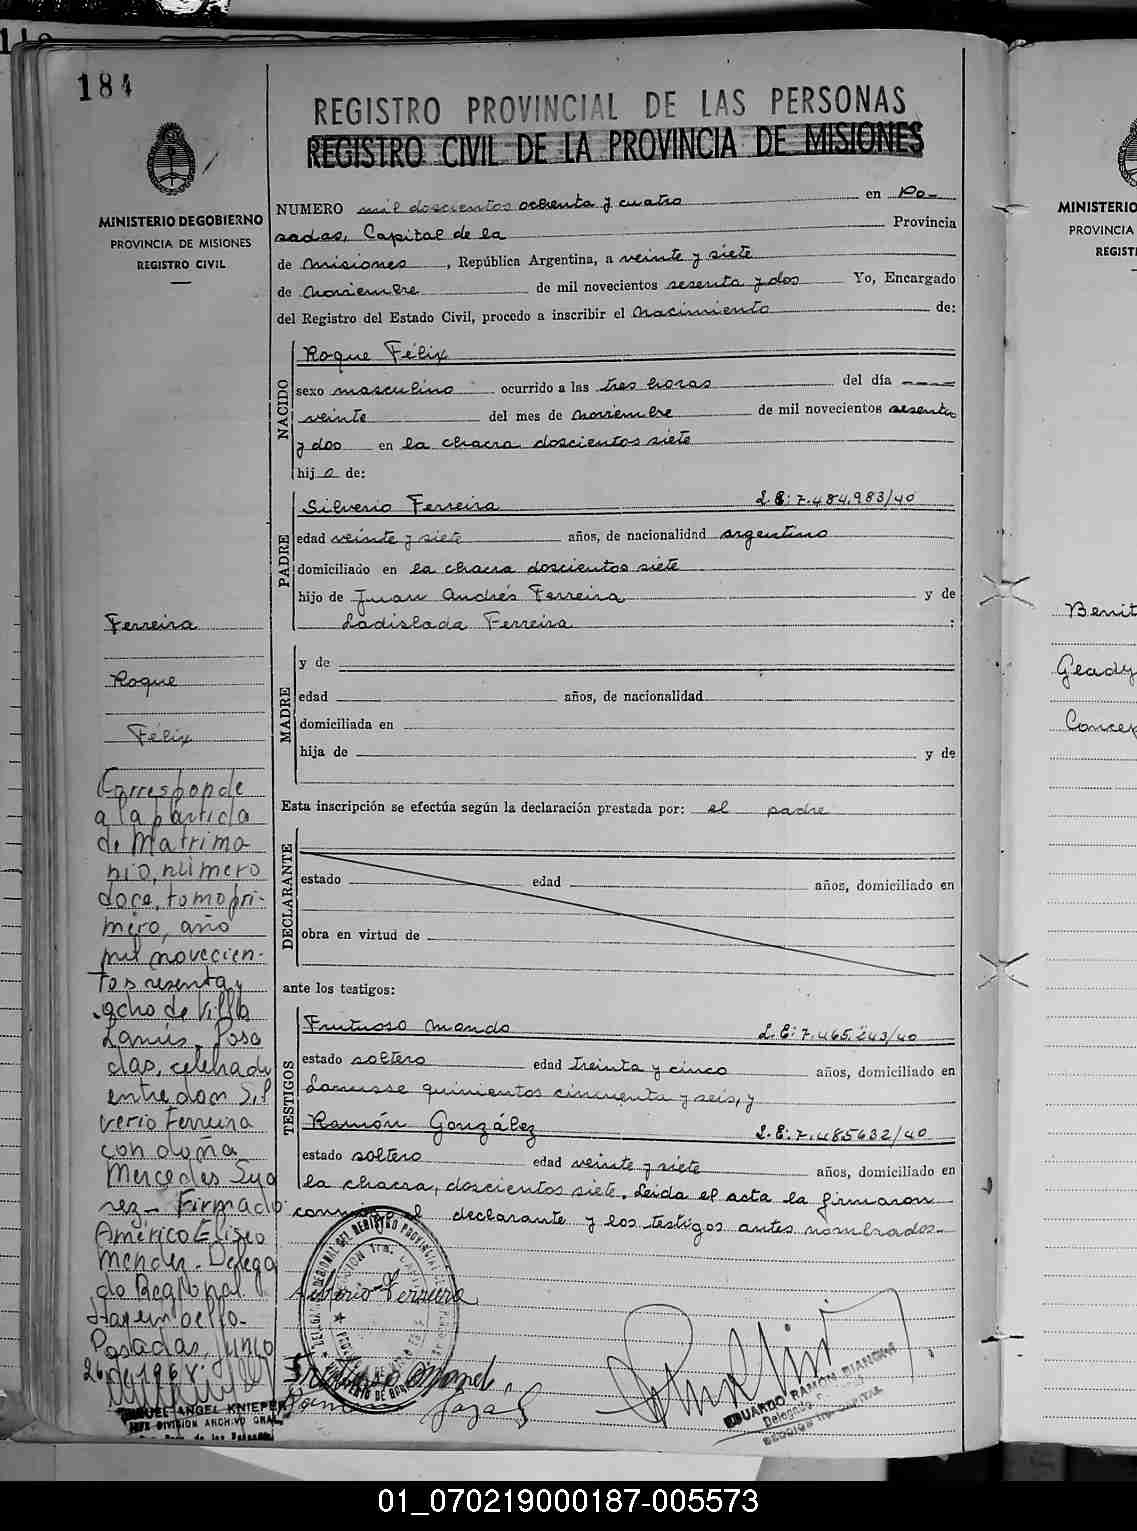 184
REGISTRO PROVINCIAL DE LAS PERSONAS
REGISTRO CIVIL DE LA PROVINCIA DE MISIONES
MINISTERIO DE GOBIERNO
PROVINCIA DE MISIONES
REGISTRO CIVIL
NUMERO mil doscientos ochenta y cuatro en Po-
sadas, Capital de la Provincia
de Misiones, República Argentina, a veinte y siete
de Noviembre de mil novecientos sesenta y dos Yo, Encargado
del Registro del Estado Civil, procedo a inscribir el Nacimiento de:
NACIDO
Roque Félix
sexo masculino ocurrido a las tres horas del día
veinte del mes de Noviembre de mil novecientos sesenta
y dos en la chacra doscientos siete
hijo de:
PADRE
Silverio Ferreira L.E: 7.484.983/40
edad veinte y siete años, de nacionalidad argentino
domiciliado en la chacra doscientos siete
hijo de Juan Andrés Ferreira y de
Ladislada Ferreira :
MADRE
y de
edad años, de nacionalidad
domiciliada en
hija de y de
Esta inscripción se efectúa según la declaración prestada por: el padre
DECLARANTE
estado edad años, domiciliado en
obra en virtud de
ante los testigos:
TESTIGOS
Frutuoso Mando L.E: 7.465.243/40
estado soltero edad treinta y cinco años, domiciliado en
Lanusse quinientos cincuenta y seis, y
Ramón González L.E: 7.485632/40
estado soltero edad veinte y siete años, domiciliado en
la chacra, doscientos siete. Leida el acta la firmaron
conmigo el declarante y los testigos antes nombrados.-
Silverio Ferreira
EDUARDO RAMON BIANCHI
Ferreira
Roque
Félix
Corresponde
a la partida
de Matrimo
nio, número
doce, tomo pri-
mero, año
mil novecien-
tos sesenta y
ocho de Villa
Lanús. Posa
das, celebrado
entre don Sil
verio Ferreira
con doña
Mercedes Sua
rez - Firmado
Américo Eliseo
Mendez - Delega
do Regional
Hay un sello-
Posadas, Junio
26 de 1968.
MIGUEL ANGEL KNIEPER
JEFE DIVISION ARCHIVO GRAL.
MINISTERIO
PROVINCIA
REGISTR
Benit
Gladys
Concep
01_070219000187-005573